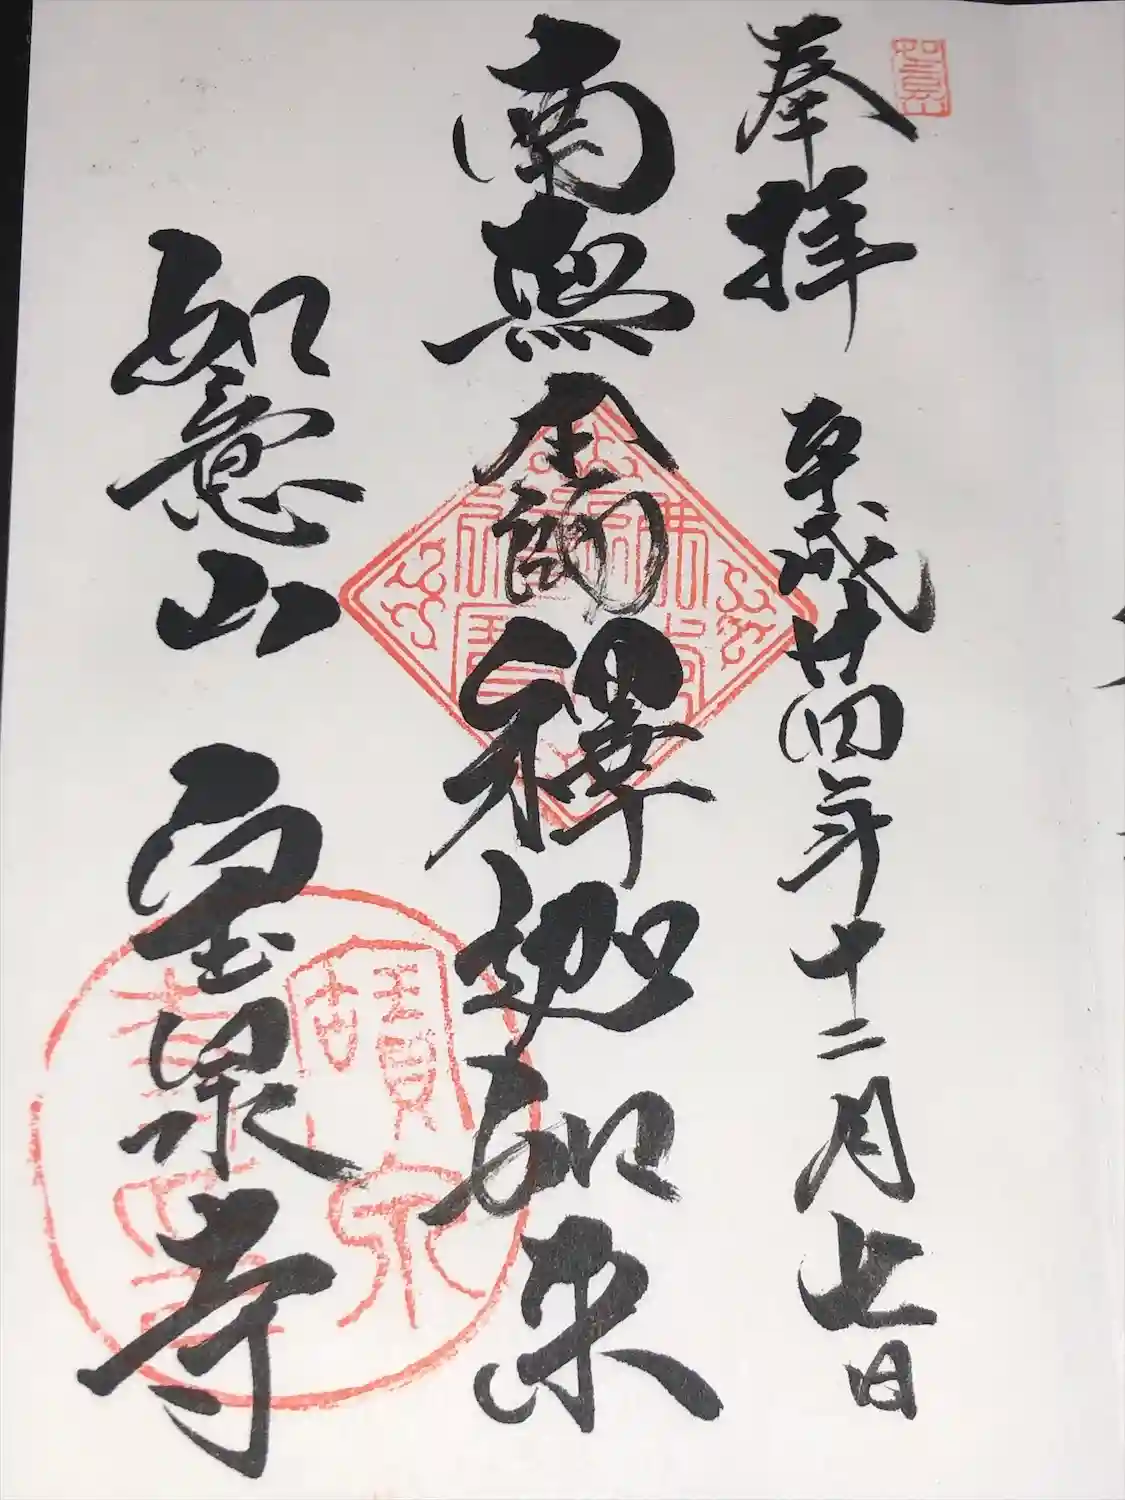 奉拝 平成廿四年十二月七日
南無本師釋迦如来
如意山 宝泉寺
如意山